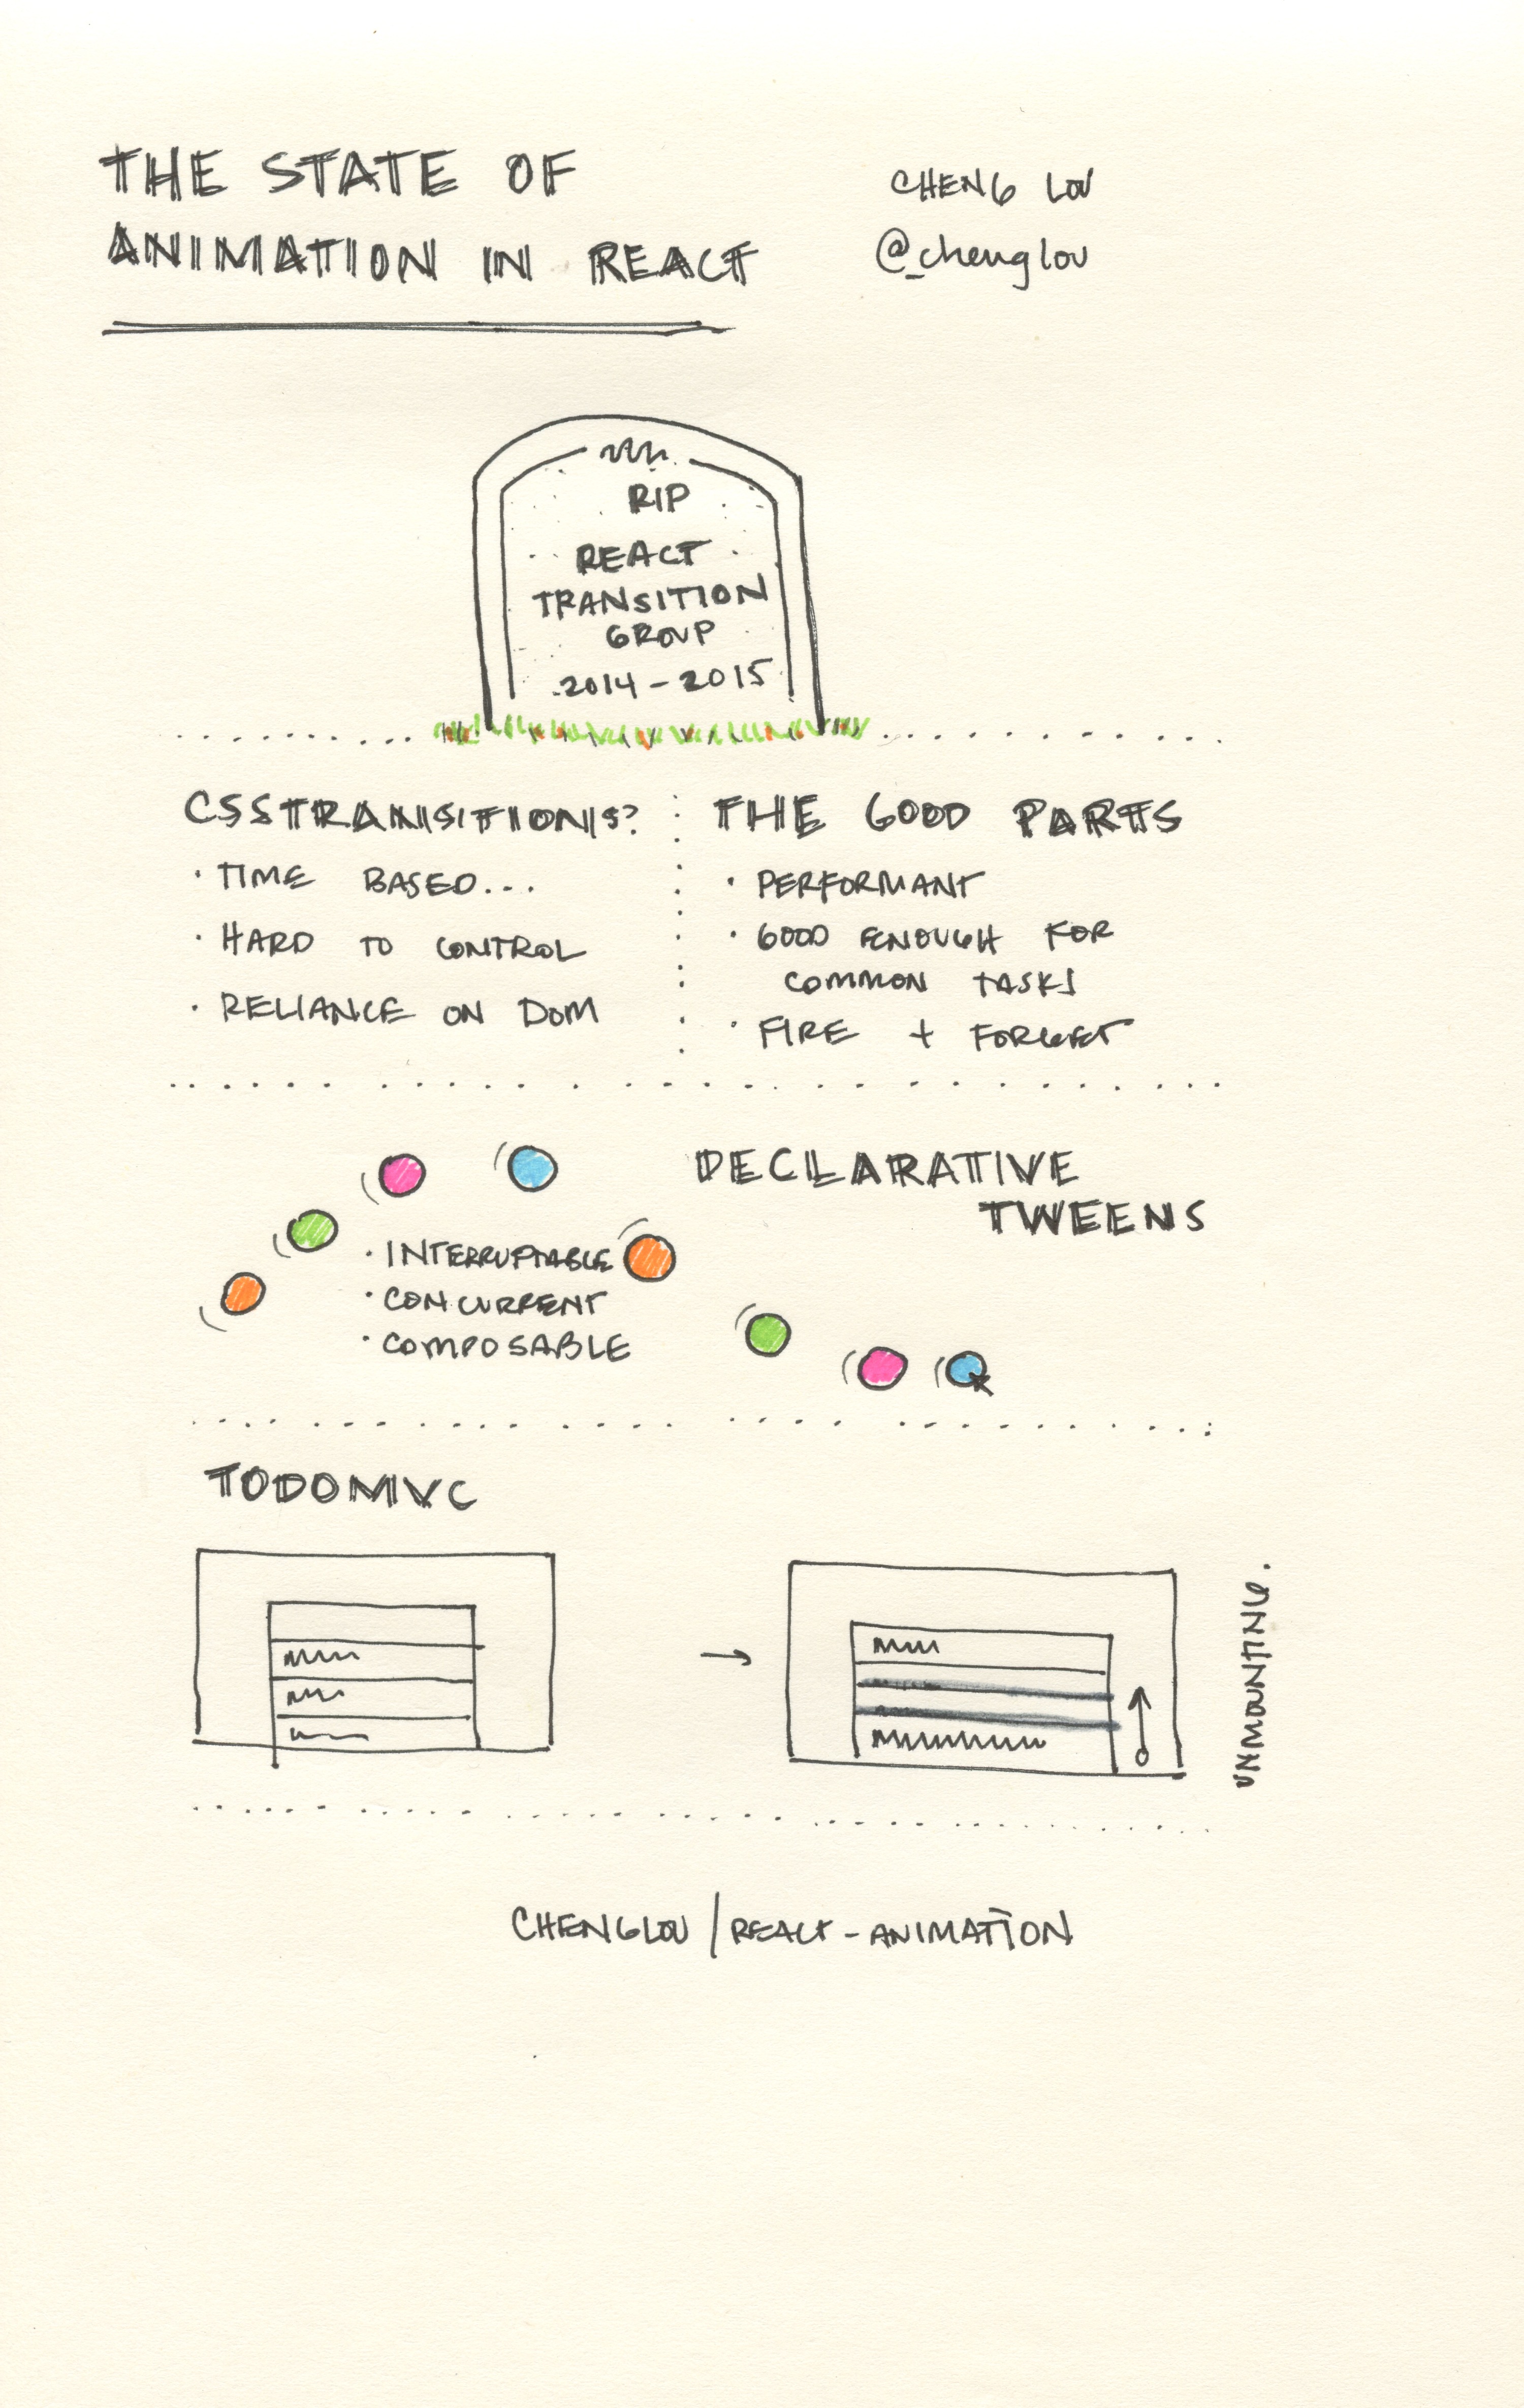 THE STATE OF
ANIMATION IN REACT
CHENG LOU
@_chenglou
RIP
REACT
TRANSITION
GROUP
2014 - 2015
CSSTRANSITIONS?
· TIME BASED...
· HARD TO CONTROL
· RELIANCE ON DOM
THE GOOD PARTS
· PERFORMANT
· GOOD ENOUGH FOR
COMMON TASKS
· FIRE + FORGET
DECLARATIVE
TWEENS
· INTERRUPTABLE
· CONCURRENT
· COMPOSABLE
TODOMVC
UNMOUNTING.
CHENGLOU / REACT-ANIMATION